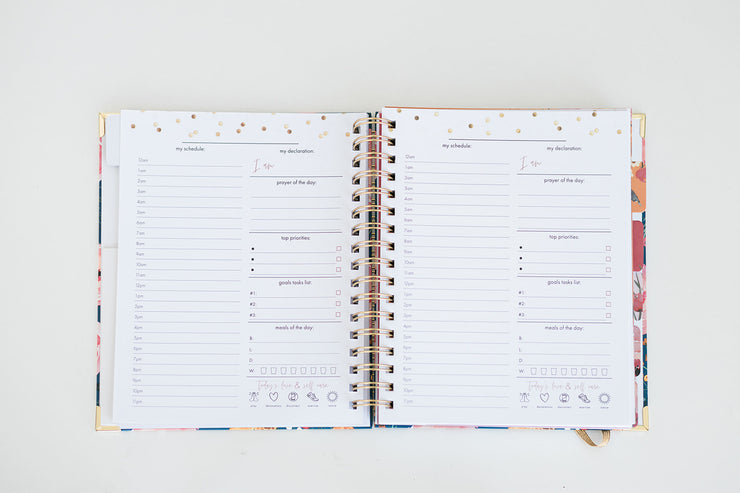 my schedule:
12am
1am
2am
3am
4am
5am
6am
7am
8am
9am
10am
11am
12pm
1pm
2pm
3pm
4pm
5pm
6pm
7pm
8pm
9pm
10pm
11pm
my declaration:
I am
prayer of the day:
top priorities:
goals tasks list:
#1:
#2:
#3:
meals of the day:
B:
L:
D:
W:
Today's love & self care
pray
declarations
disconnect
exercise
nature
my schedule:
12am
1am
2am
3am
4am
5am
6am
7am
8am
9am
10am
11am
12pm
1pm
2pm
3pm
4pm
5pm
6pm
7pm
8pm
9pm
10pm
11pm
my declaration:
I am
prayer of the day:
top priorities:
goals tasks list:
#1:
#2:
#3:
meals of the day:
B:
L:
D:
W:
Today's love & self care
pray
declarations
disconnect
exercise
nature